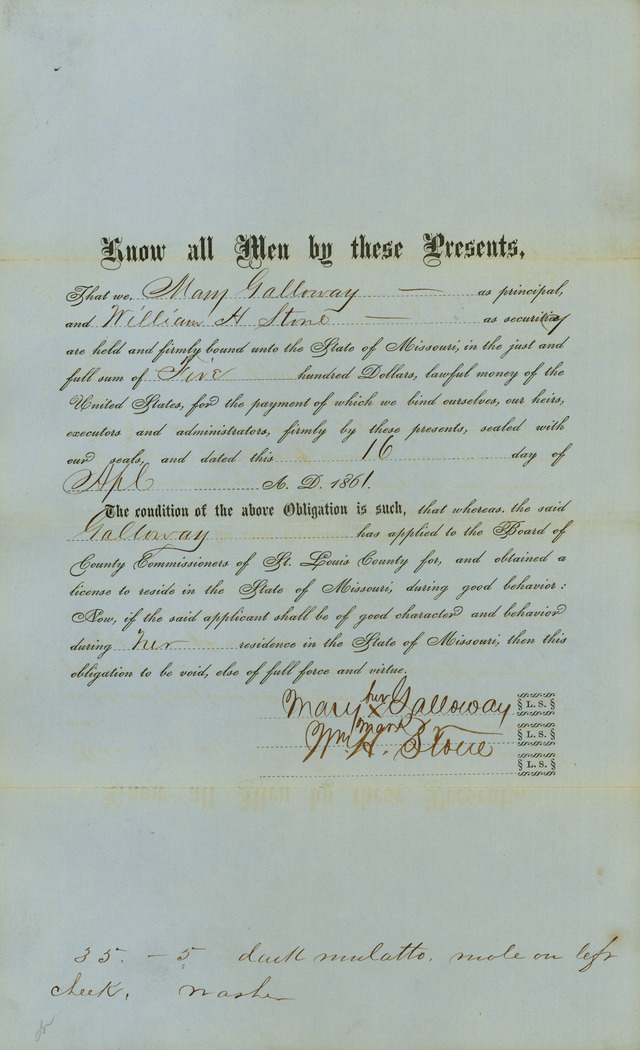 Know all Men by these Presents,
That we, Mary Galloway — as principal,
and William H Stone — as security
are held and firmly bound unto the State of Missouri, in the just and
full sum of Five hundred Dollars, lawful money of the
United States, for the payment of which we bind ourselves, our heirs,
executors and administrators, firmly by these presents, sealed with
our seals, and dated this 16 day of
Apl A. D. 1861.
The condition of the above Obligation is such, that whereas, the said
Galloway has applied to the Board of
County Commissioners of St. Louis County for, and obtained a
license to reside in the State of Missouri, during good behavior:
Now, if the said applicant shall be of good character and behavior
during her residence in the State of Missouri, then this
obligation to be void, else of full force and virtue.
Mary her Galloway L. S.
x mark
Wm. H. Stone L. S.
L. S.
35. - 5 dark mulatto. mole on left
cheek. washer